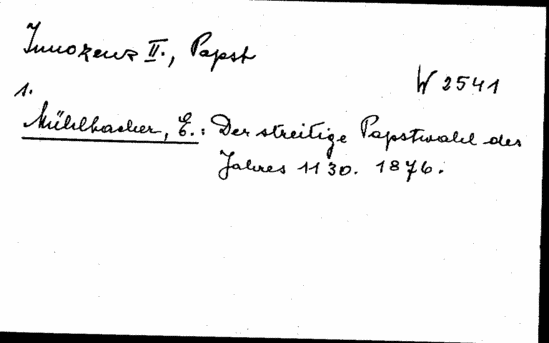 Innozenz II., Papst
W 2541
1.
Mühlbacher, E.: Der streitige Papstwahl des
Jahres 1130. 1876.